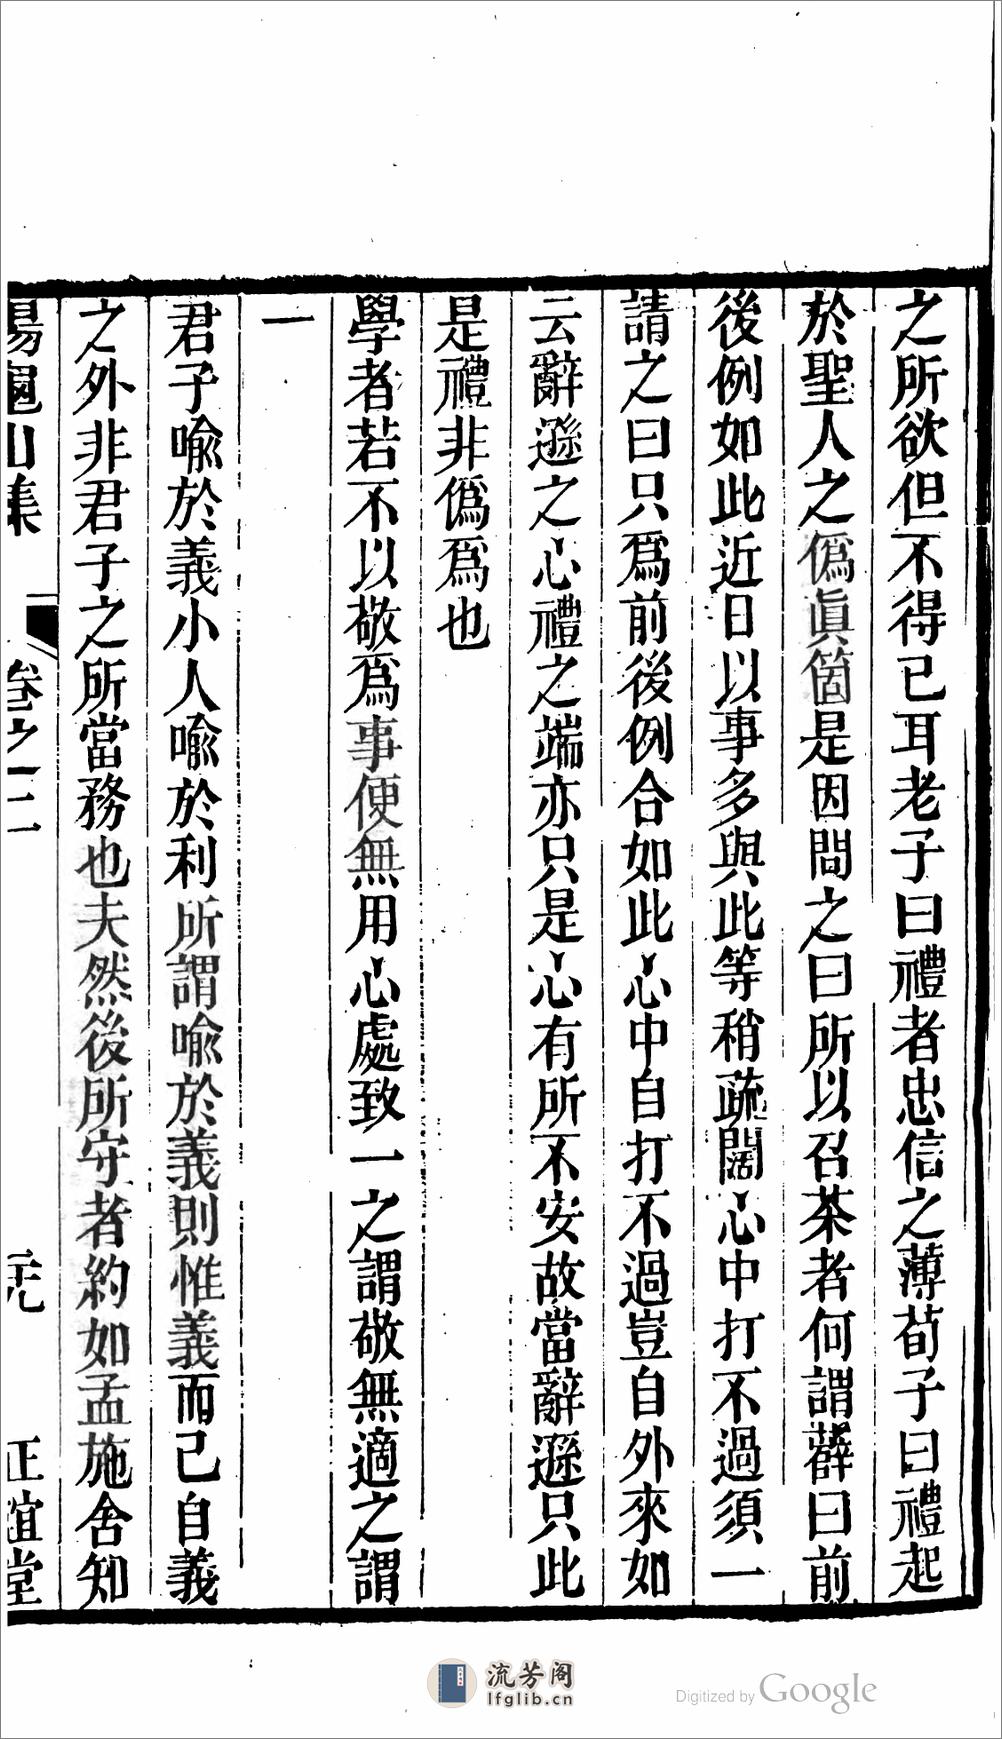 之所欲但不得已耳老子曰禮者忠信之薄荀子曰禮起
於聖人之僞眞箇是因問之曰所以召茶者何謂薛曰前
後例如此近日以事多與此等稍疏闊心中打不過須一
請之曰只爲前後例合如此心中自打不過豈自外來如
云辭遜之心禮之端亦只是心有所不安故當辭遜只此
是禮非僞爲也
學者若不以敬爲事便無用心處致一之謂敬無適之謂
一
君子喩於義小人喩於利所謂喩於義則惟義而已自義
之外非君子之所當務也夫然後所守者約如孟施舍知
楊龜山集 卷之二 正誼堂
流芳阁
lfglib.cn
Digitized by Google